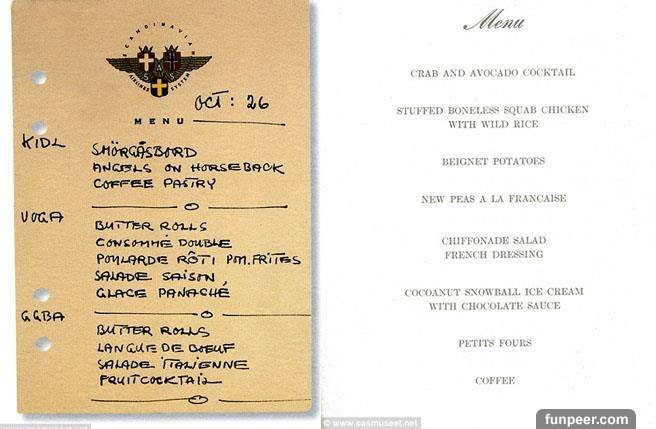 SCANDINAVIAN
SAS
AIRLINES SYSTEM
OCT : 26
MENU
KIDL
SMÖRGÅSBORD
ANGELS ON HORSEBACK
COFFEE PASTRY
VOGA
BUTTER ROLLS
CONSOMMÉ DOUBLE
POULARDE RÔTI PM. FRITES
SALADE SAISON
GLACE PANACHÉ
GGBA
BUTTER ROLLS
LANGUE DE BOEUF
SALADE ITALIENNE
FRUITCOCKTAIL
Menu
CRAB AND AVOCADO COCKTAIL
STUFFED BONELESS SQUAB CHICKEN
WITH WILD RICE
BEIGNET POTATOES
NEW PEAS A LA FRANCAISE
CHIFFONADE SALAD
FRENCH DRESSING
COCOANUT SNOWBALL ICE CREAM
WITH CHOCOLATE SAUCE
PETITS FOURS
COFFEE
© www.sasmuseet.net
funpeer.com